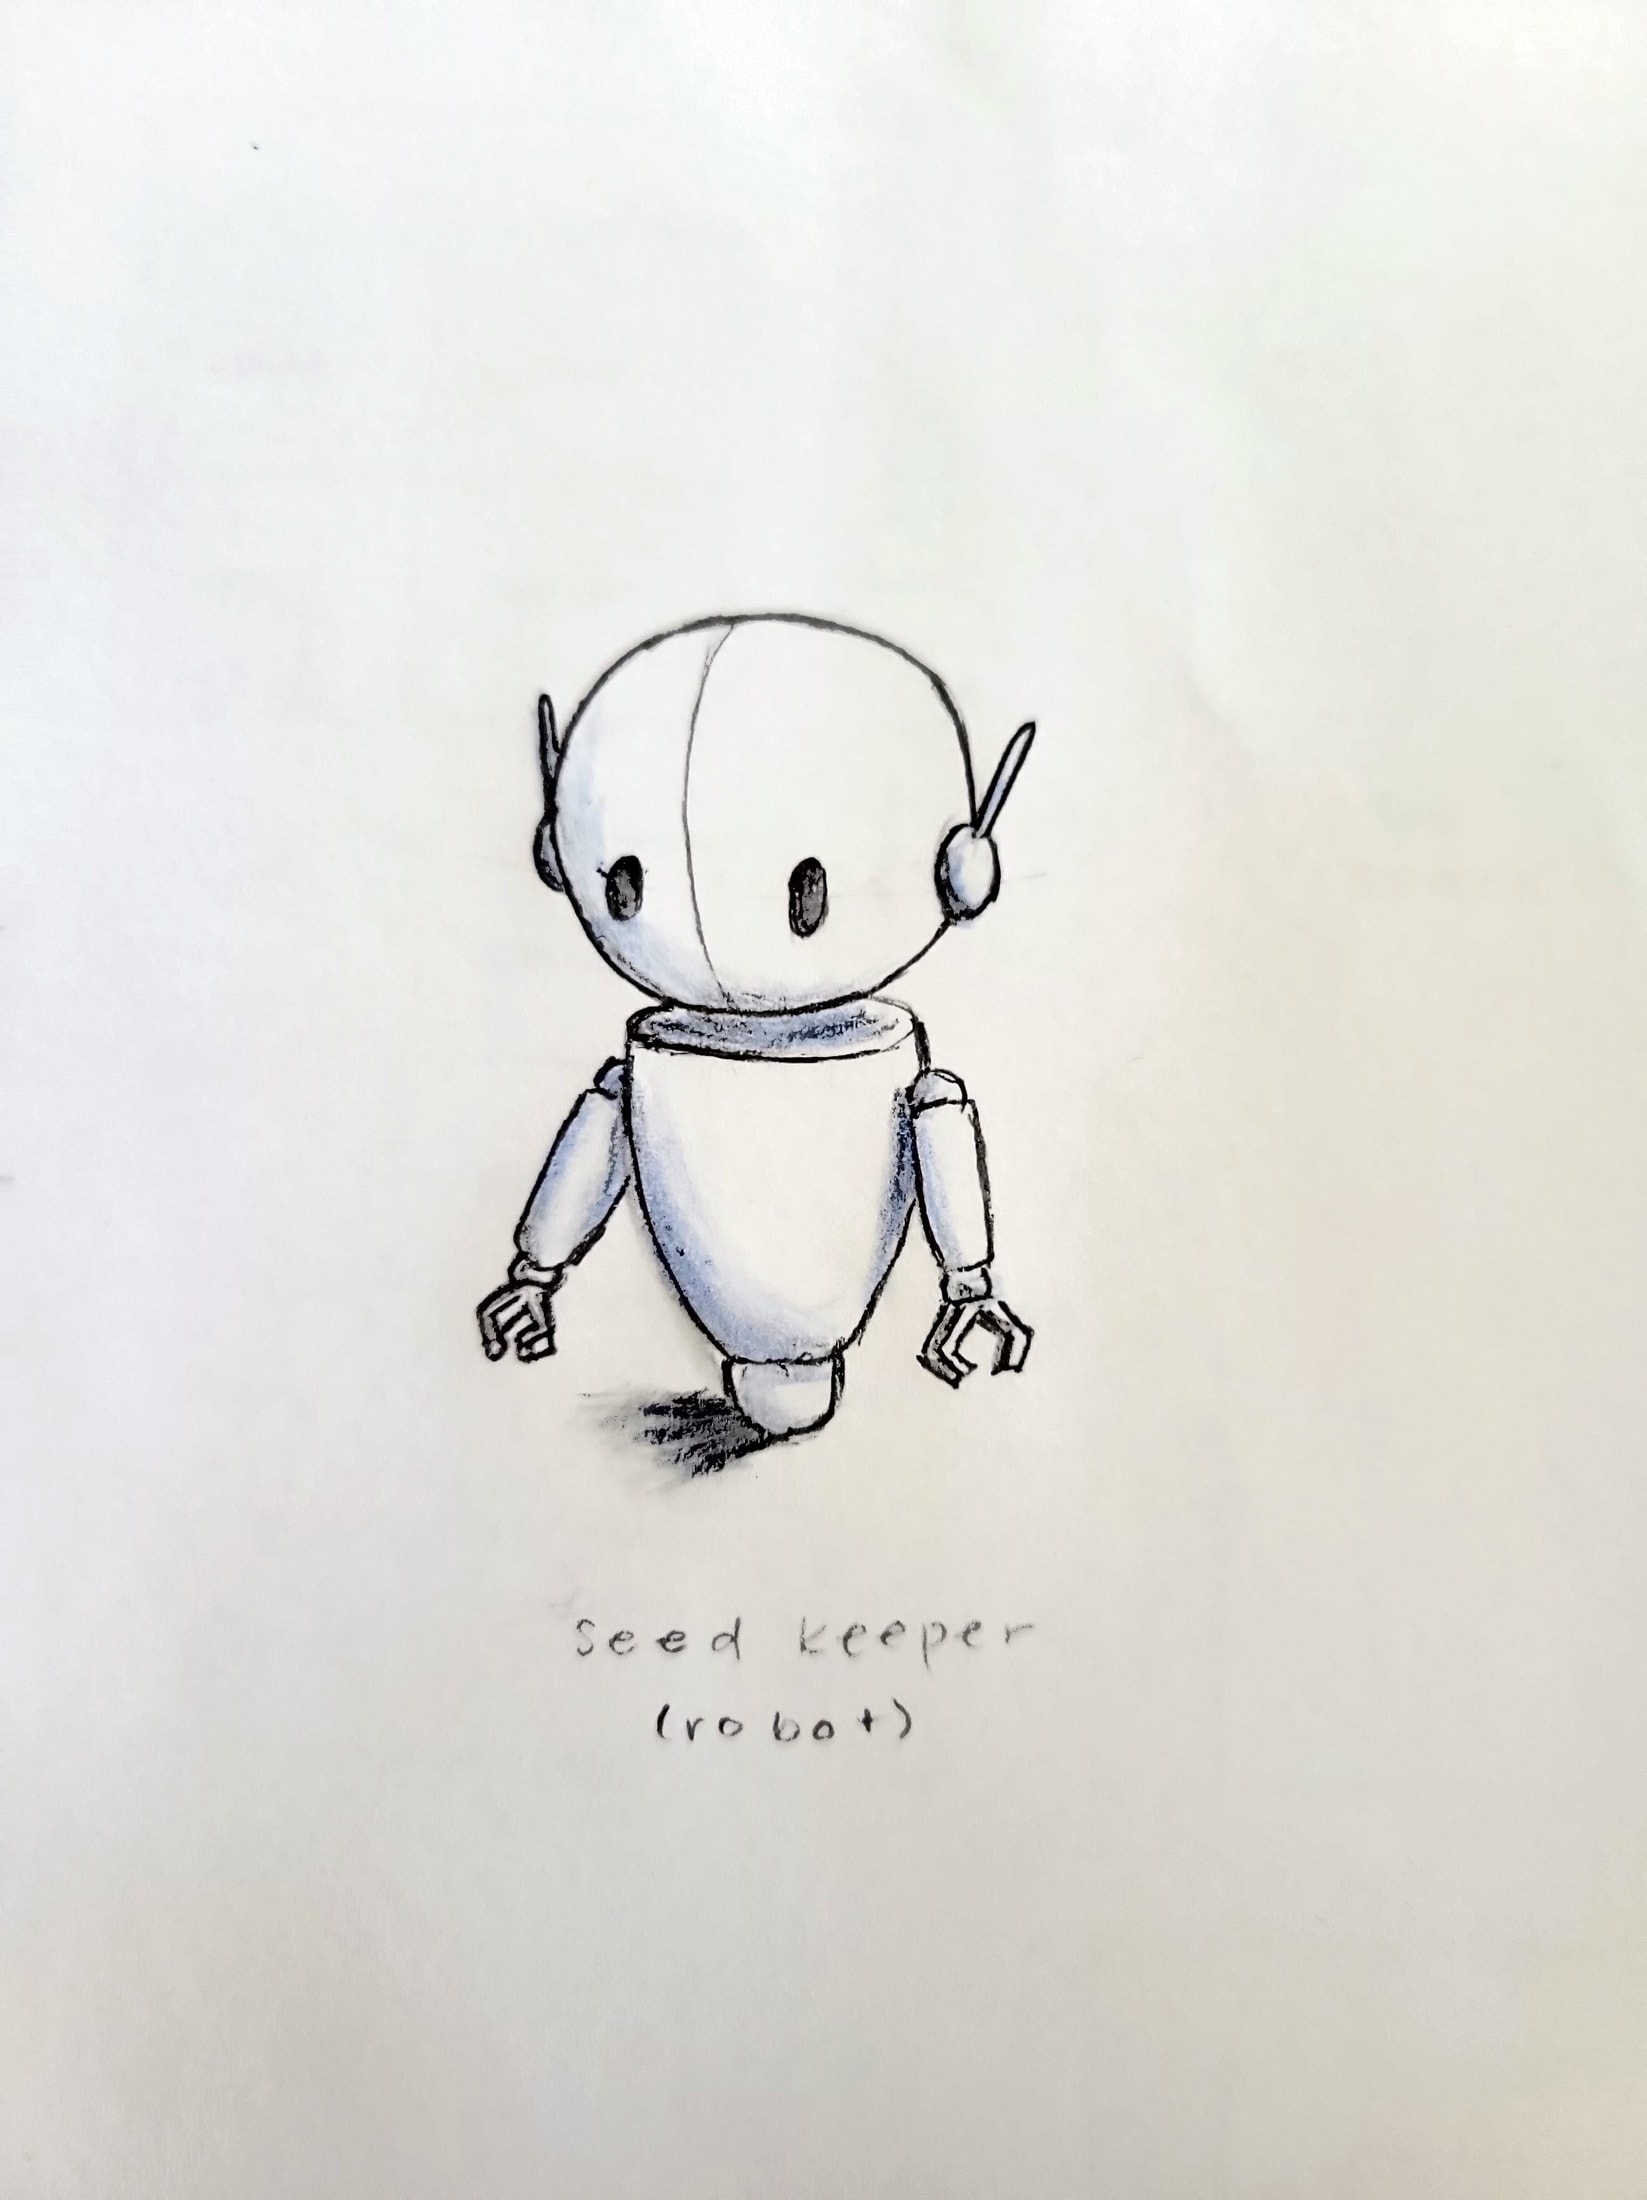 seed keeper
(robot)